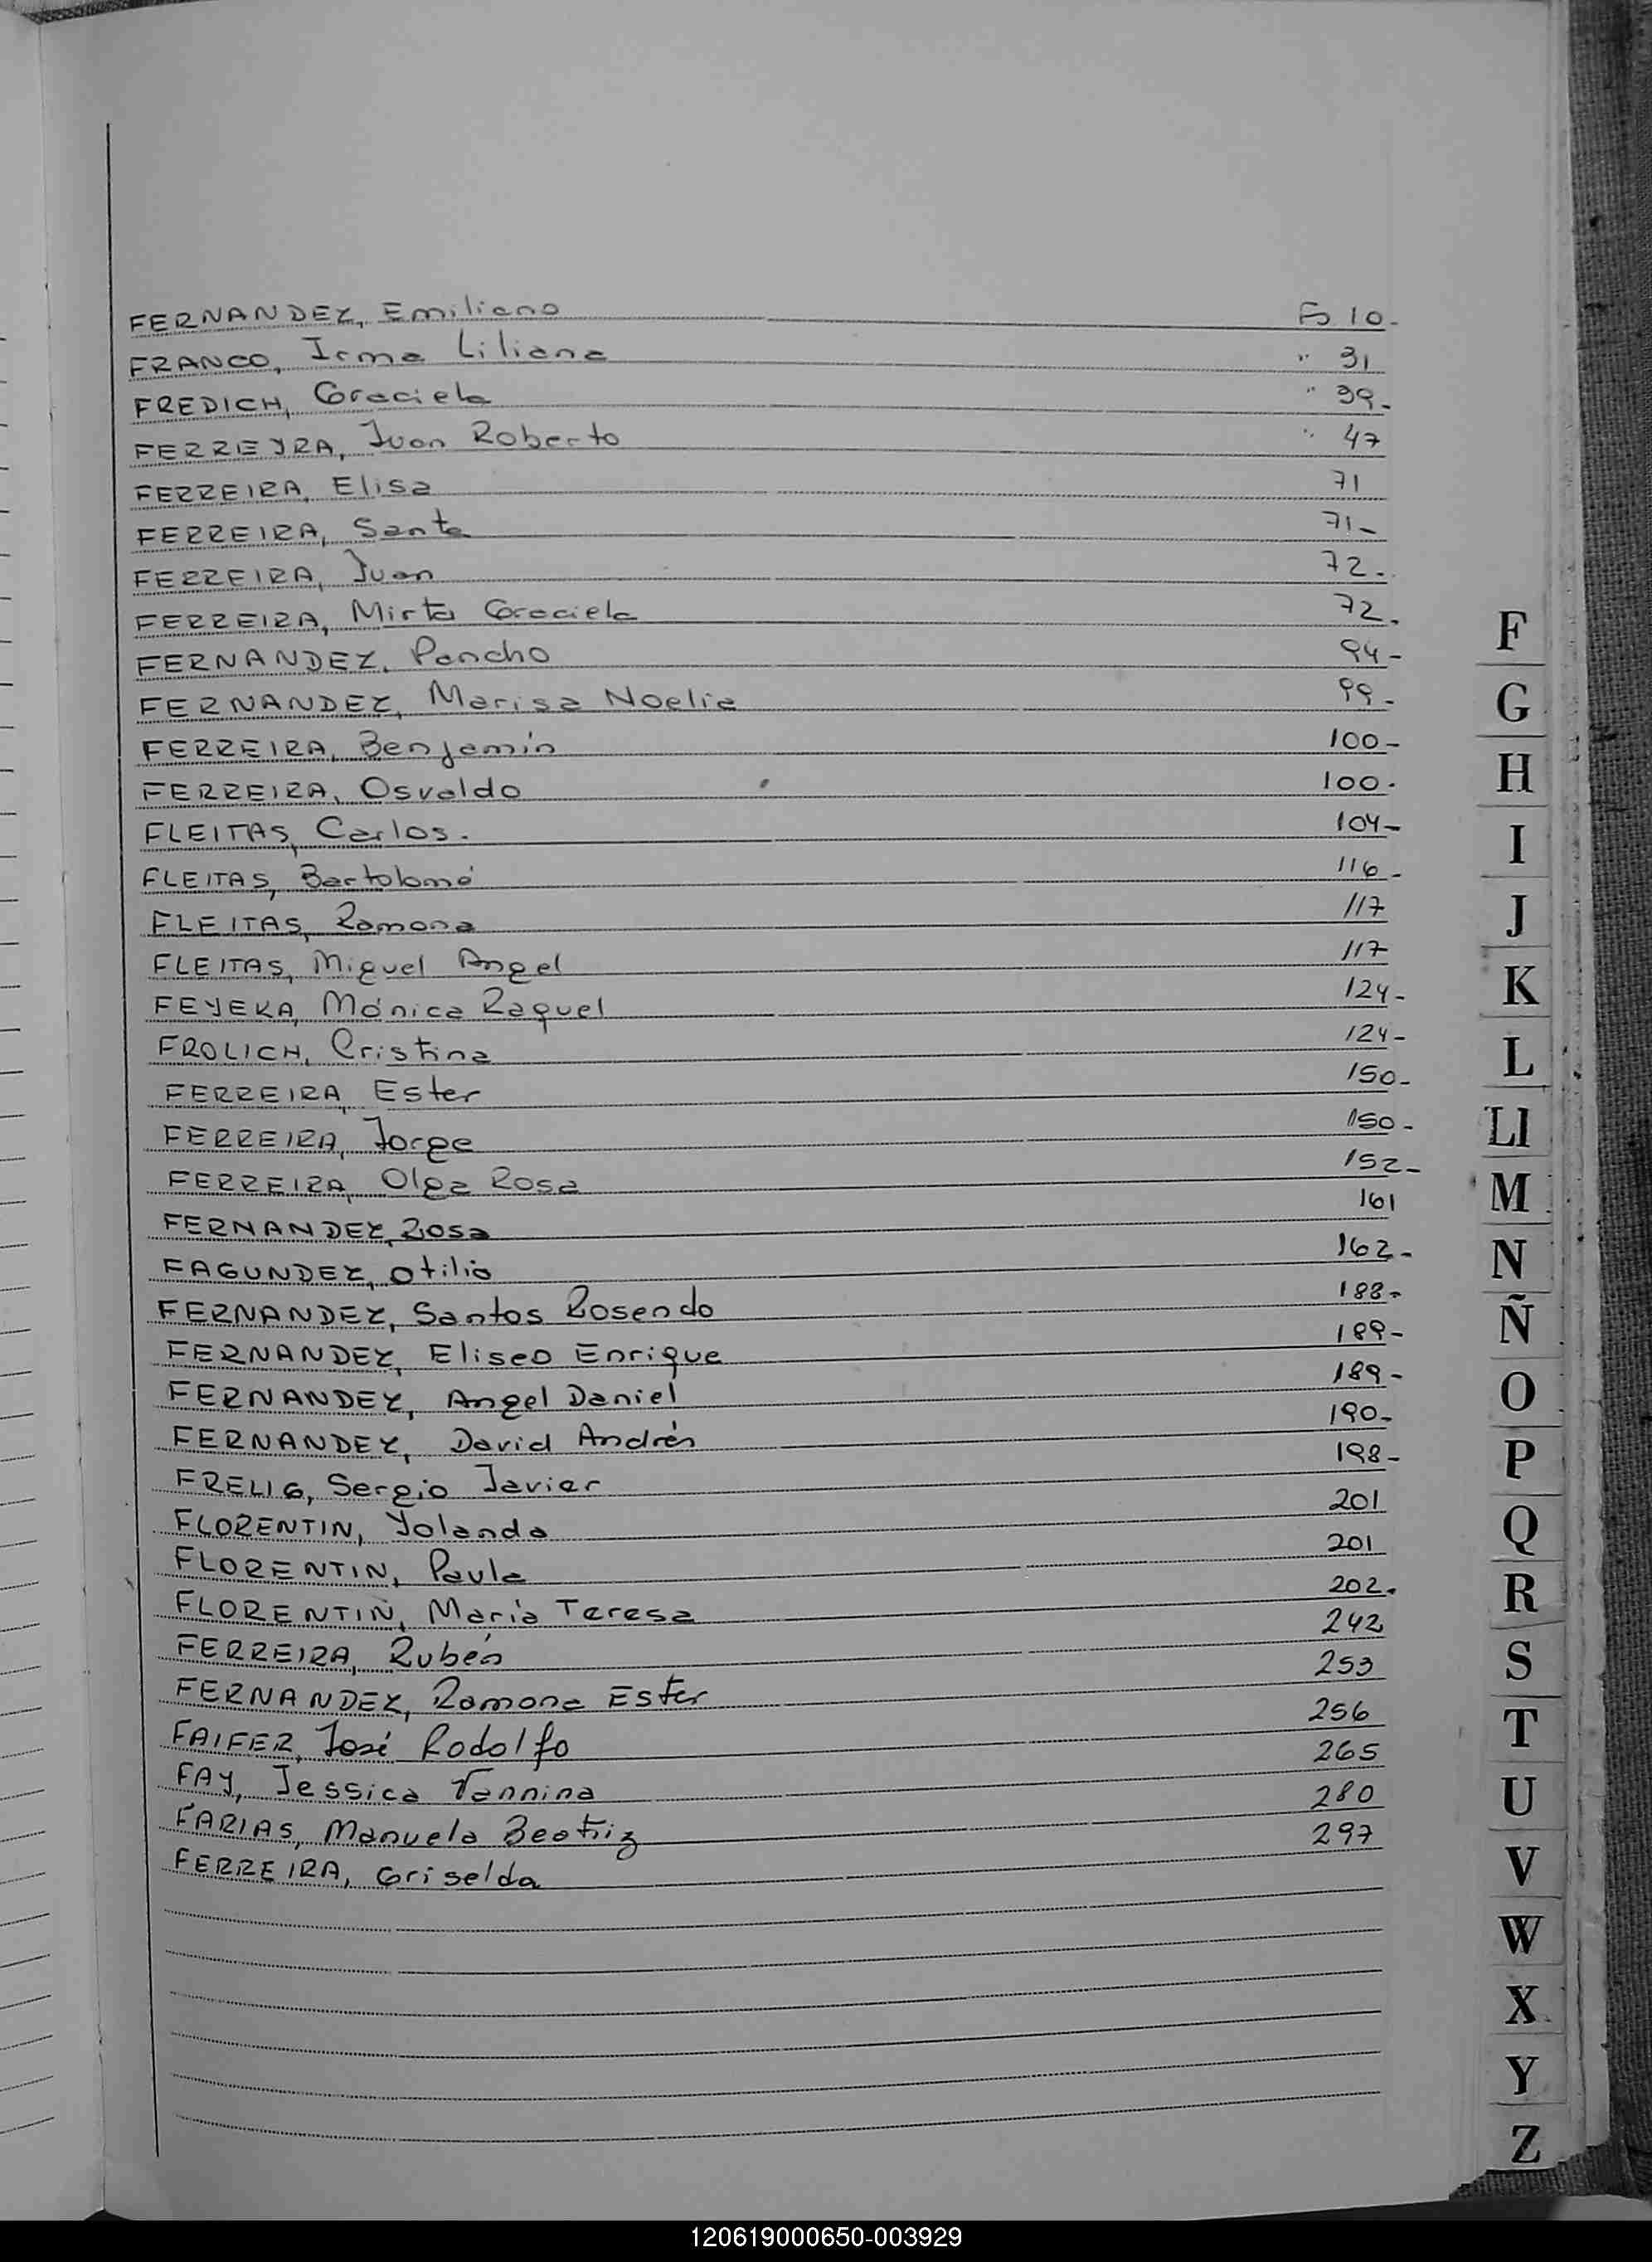 FERNANDEZ, Emiliano Fo 10-
FRANCO, Irma Liliana " 31
FREDICH, Graciela " 39-
FERREYRA, Juan Roberto " 47
FERREIRA, Elisa 71
FERREIRA, Santa 71-
FERREIRA, Juan 72.
FERREIRA, Mirta Graciela 72.
FERNANDEZ, Pancho 94-
FERNANDEZ, Marisa Noelia 99-
FERREIRA, Benjamín 100-
FERREIRA, Osvaldo 100.
FLEITAS, Carlos. 104-
FLEITAS, Bartolomé 116-
FLEITAS, Ramona 117
FLEITAS, Miguel Angel 117
FEYEKA, Mónica Raquel 124-
FROLICH, Cristina 124-
FERREIRA, Ester 150-
FERREIRA, Jorge 150-
FERREIRA, Olga Rosa 152-
FERNANDEZ, Rosa 161
FAGUNDEZ, Otilio 162-
FERNANDEZ, Santos Rosendo 188-
FERNANDEZ, Eliseo Enrique 189-
FERNANDEZ, Angel Daniel 189-
FERNANDEZ, David Andrés 190-
FRELIG, Sergio Javier 198-
FLORENTIN, Yolanda 201
FLORENTIN, Paula 201
FLORENTIN, María Teresa 202.
FERREIRA, Rubén 242
FERNANDEZ, Ramona Ester 253
FAIFER, José Rodolfo 256
FAY, Jessica Vannina 265
FARIAS, Manuela Beatriz 280
FERREIRA, Griselda 297
F
G
H
I
J
K
L
Ll
M
N
Ñ
O
P
Q
R
S
T
U
V
W
X
Y
Z
120619000650-003929